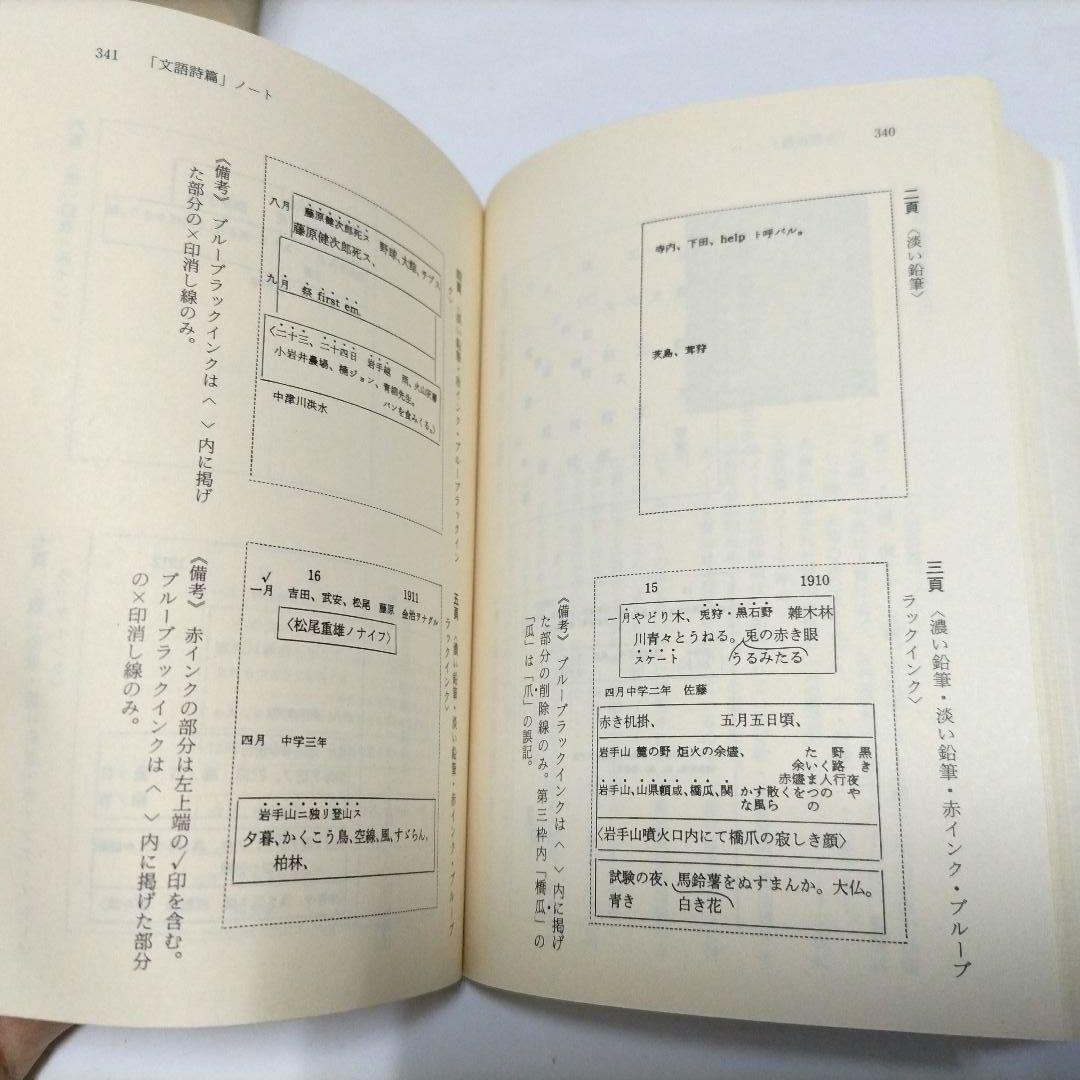 340
二頁〈淡い鉛筆〉
寺内、下田、help ト呼バル。
茨島、茸狩
三頁〈濃い鉛筆・淡い鉛筆・赤インク・ブルーブ
ラックインク〉
15 1910
一月やどり木、兎狩・黒石野 雑木林
川青々とうねる。兎の赤き眼
スケート うるみたる
四月中学二年 佐藤
赤き机掛、 五月五日頃、
岩手山 麓の野 炬火の余燼
岩手山、山県頼咸、橋瓜、関
黒き夜や
野路行の
たいく人つの
余燼まを
赤くら
かす散
な風
〈岩手山噴火口内にて橋爪の寂しき顔〉
試験の夜、馬鈴薯をぬすまんか。大仏。
青き 白き花
《備考》 ブルーブラックインクは〈 〉内に掲げ
た部分の削除線のみ。第三枠内「橋瓜」の
「瓜」は「爪」の誤記。
341 「文語詩篇」ノート
八月 藤原健次郎死ス 野球、大館、チブス
藤原健次郎死ス、
九月 祭 first em.
〈二十三、二十四日 岩手登 雨、火山灰
小岩井農場、橋ジョン、青柳先生。
パンを食みくる。〉
中津川洪水
《備考》 ブルーブラックインクは〈 〉内に掲げ
た部分の×印消し線のみ。
五頁〈濃い鉛筆・淡い鉛筆・赤インク・ブルーブ
ラックインク〉
✓ 16 1911
一月 吉田、武安、松尾 藤原 金治ヲナグル
〈松尾重雄ノナイフ〉
四月 中学三年
岩手山ニ独リ登山ス
夕暮、かくこう鳥、空線、風、すゞらん、
柏林、
《備考》 赤インクの部分は左上端の✓印を含む。
ブルーブラックインクは〈 〉内に掲げた部分
の×印消し線のみ。